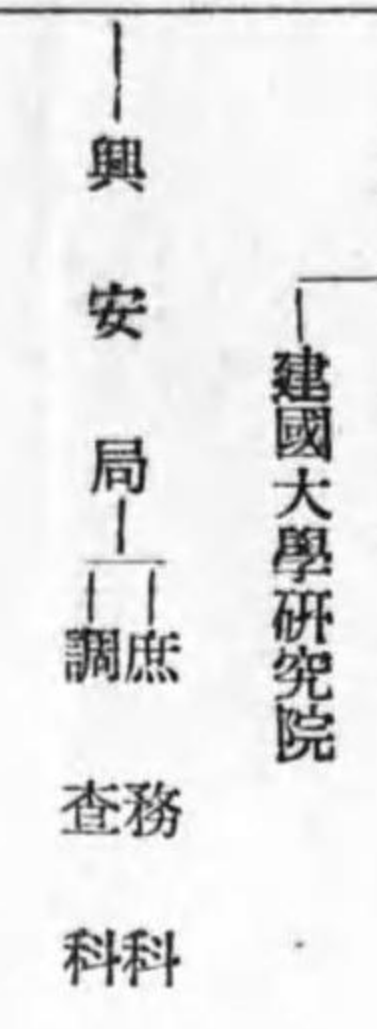 建國大學硏究院
興安局
庶務科
調査科